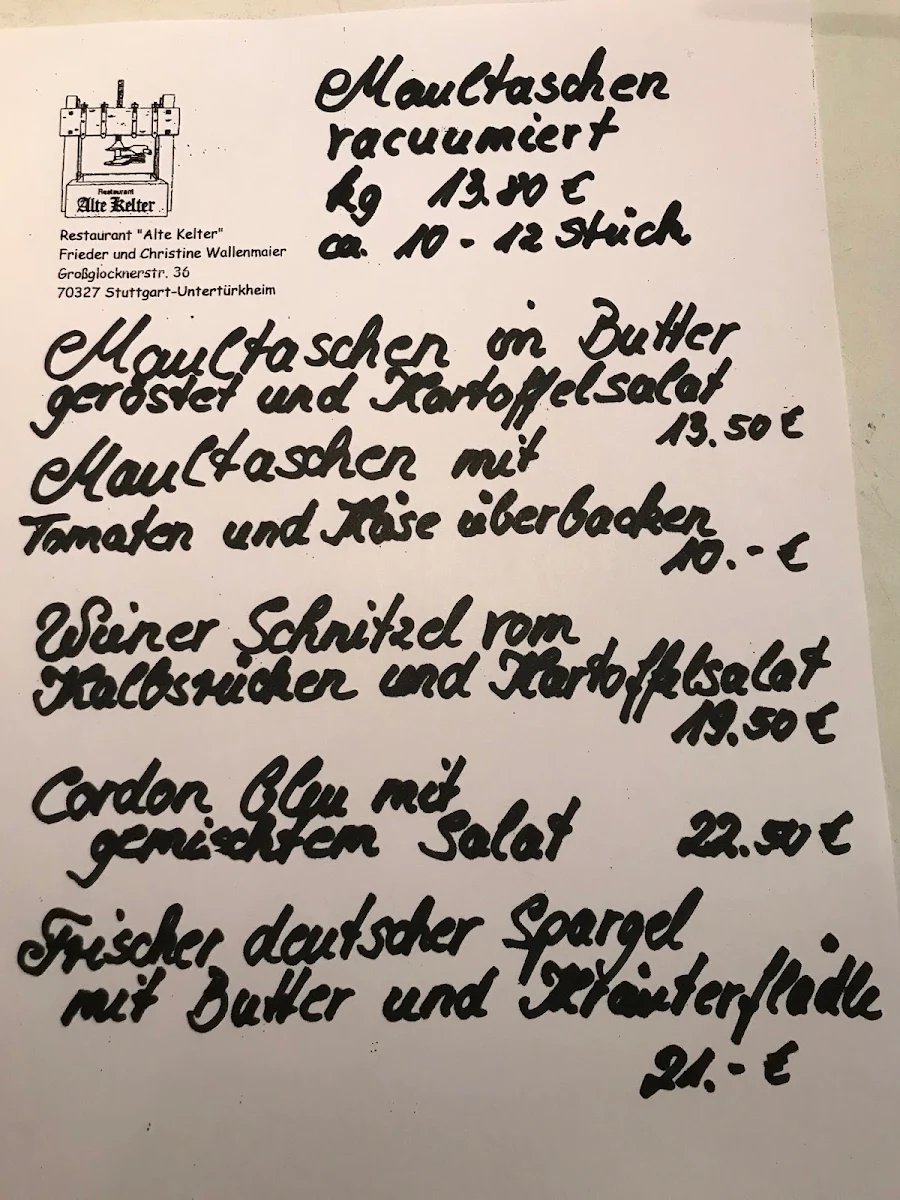 Restaurant
Alte Kelter
Restaurant "Alte Kelter"
Frieder und Christine Wallenmaier
Großglocknerstr. 36
70327 Stuttgart-Untertürkheim
Maultaschen
vacuumiert
kg 13.80 €
ca. 10 - 12 Stück
Maultaschen in Butter
geröstet und Kartoffelsalat
13.50 €
Maultaschen mit
Tomaten und Käse überbacken
10.- €
Wiener Schnitzel vom
Kalbsrücken und Kartoffelsalat
19.50 €
Cordon Bleu mit
gemischtem Salat 22.50 €
Frischer deutscher Spargel
mit Butter und Kräuterflädle
21.- €